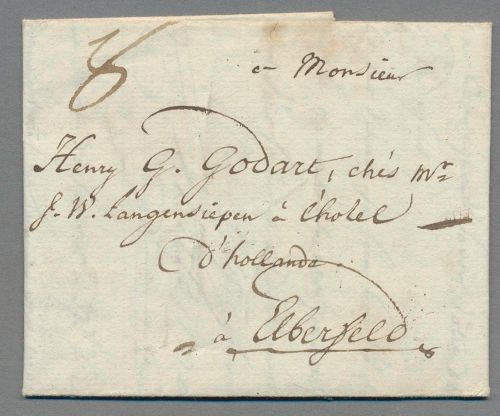 a Monsieur
Henry G. Godart, chés Mr
J. W. Langensiepen à l'hotel
d'hollande
à Elberfeld